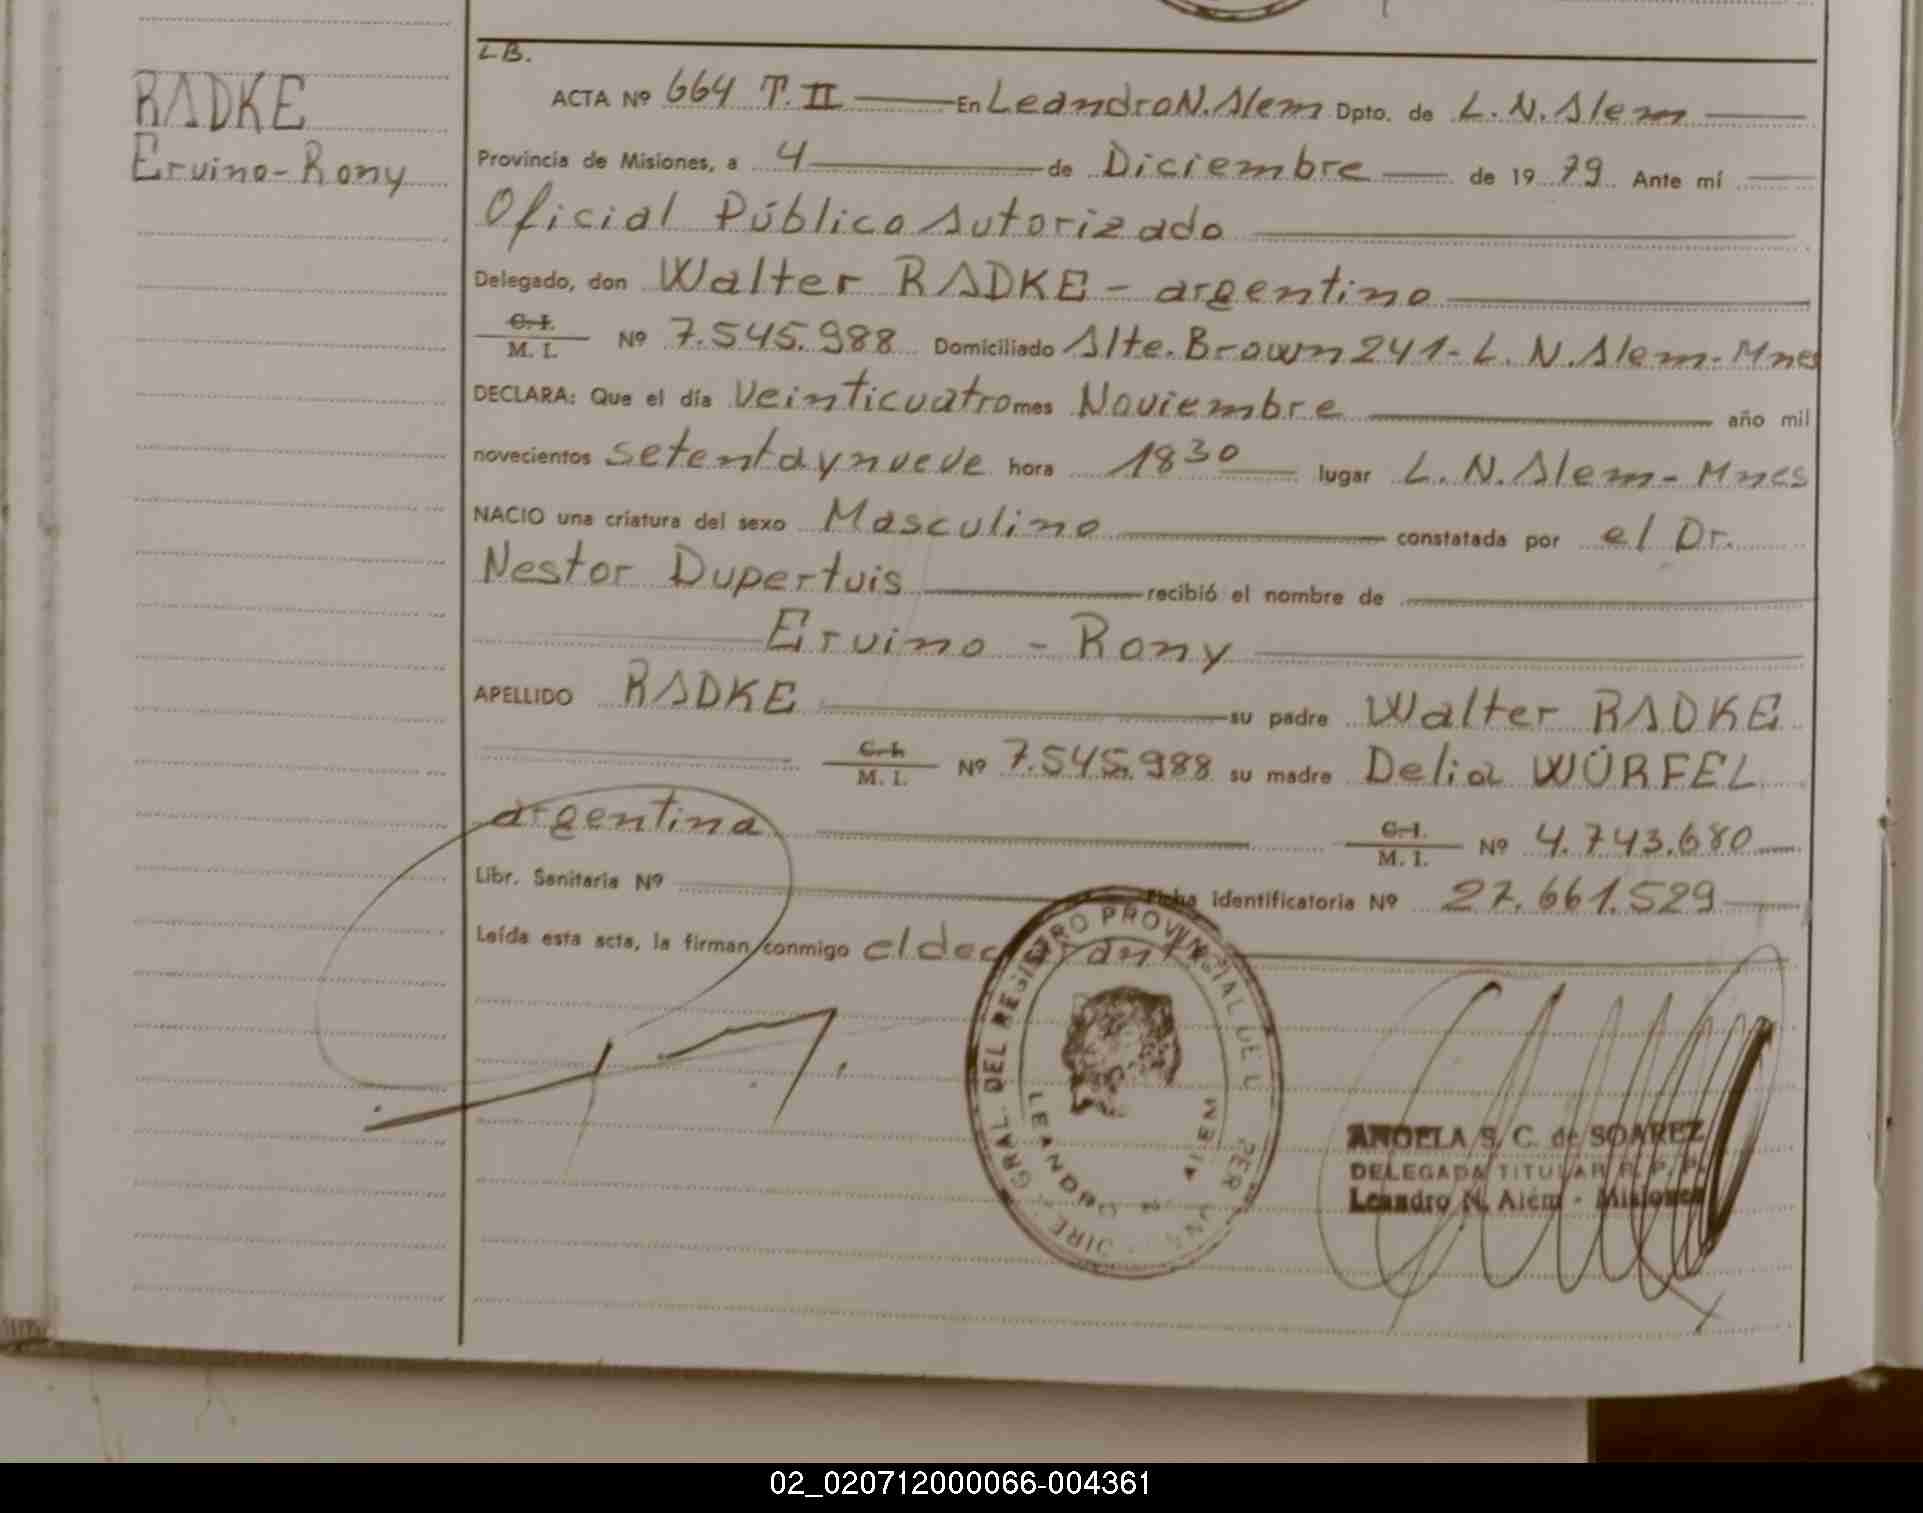 L.B.
RADKE
Ervino-Rony
ACTA Nº 664 T. II En Leandro N. Alem Dpto. de L. N. Alem
Provincia de Misiones, a 4 de Diciembre de 19 79. Ante mí
Oficial Público Autorizado
Delegado, don Walter RADKE - argentino
C. I.
M. I. Nº 7.545.988 Domiciliado Alte. Brown 241 - L. N. Alem - Mnes
DECLARA: Que el día Veinticuatro mes Noviembre año mil
novecientos setenta y nueve hora 18 30 lugar L. N. Alem - Mnes
NACIO una criatura del sexo Masculino constatada por el Dr.
Nestor Dupertuis recibió el nombre de
Ervino - Rony
APELLIDO RADKE su padre Walter RADKE
C. I.
M. I. Nº 7.545.988 su madre Delia WÜRFEL
argentina C. I.
M. I. Nº 4.743.680
Libr. Sanitaria Nº Ficha identificatoria Nº 27.661.529
Leída esta acta, la firman conmigo el declarante
GRAL. DEL REGISTRO PROVINCIAL DE L
LEANDRO N. ALEM
ANGELA S. C. de SOAREZ
DELEGADA TITULAR R. P. P.
Leandro N. Alem - Misiones
02_020712000066-004361